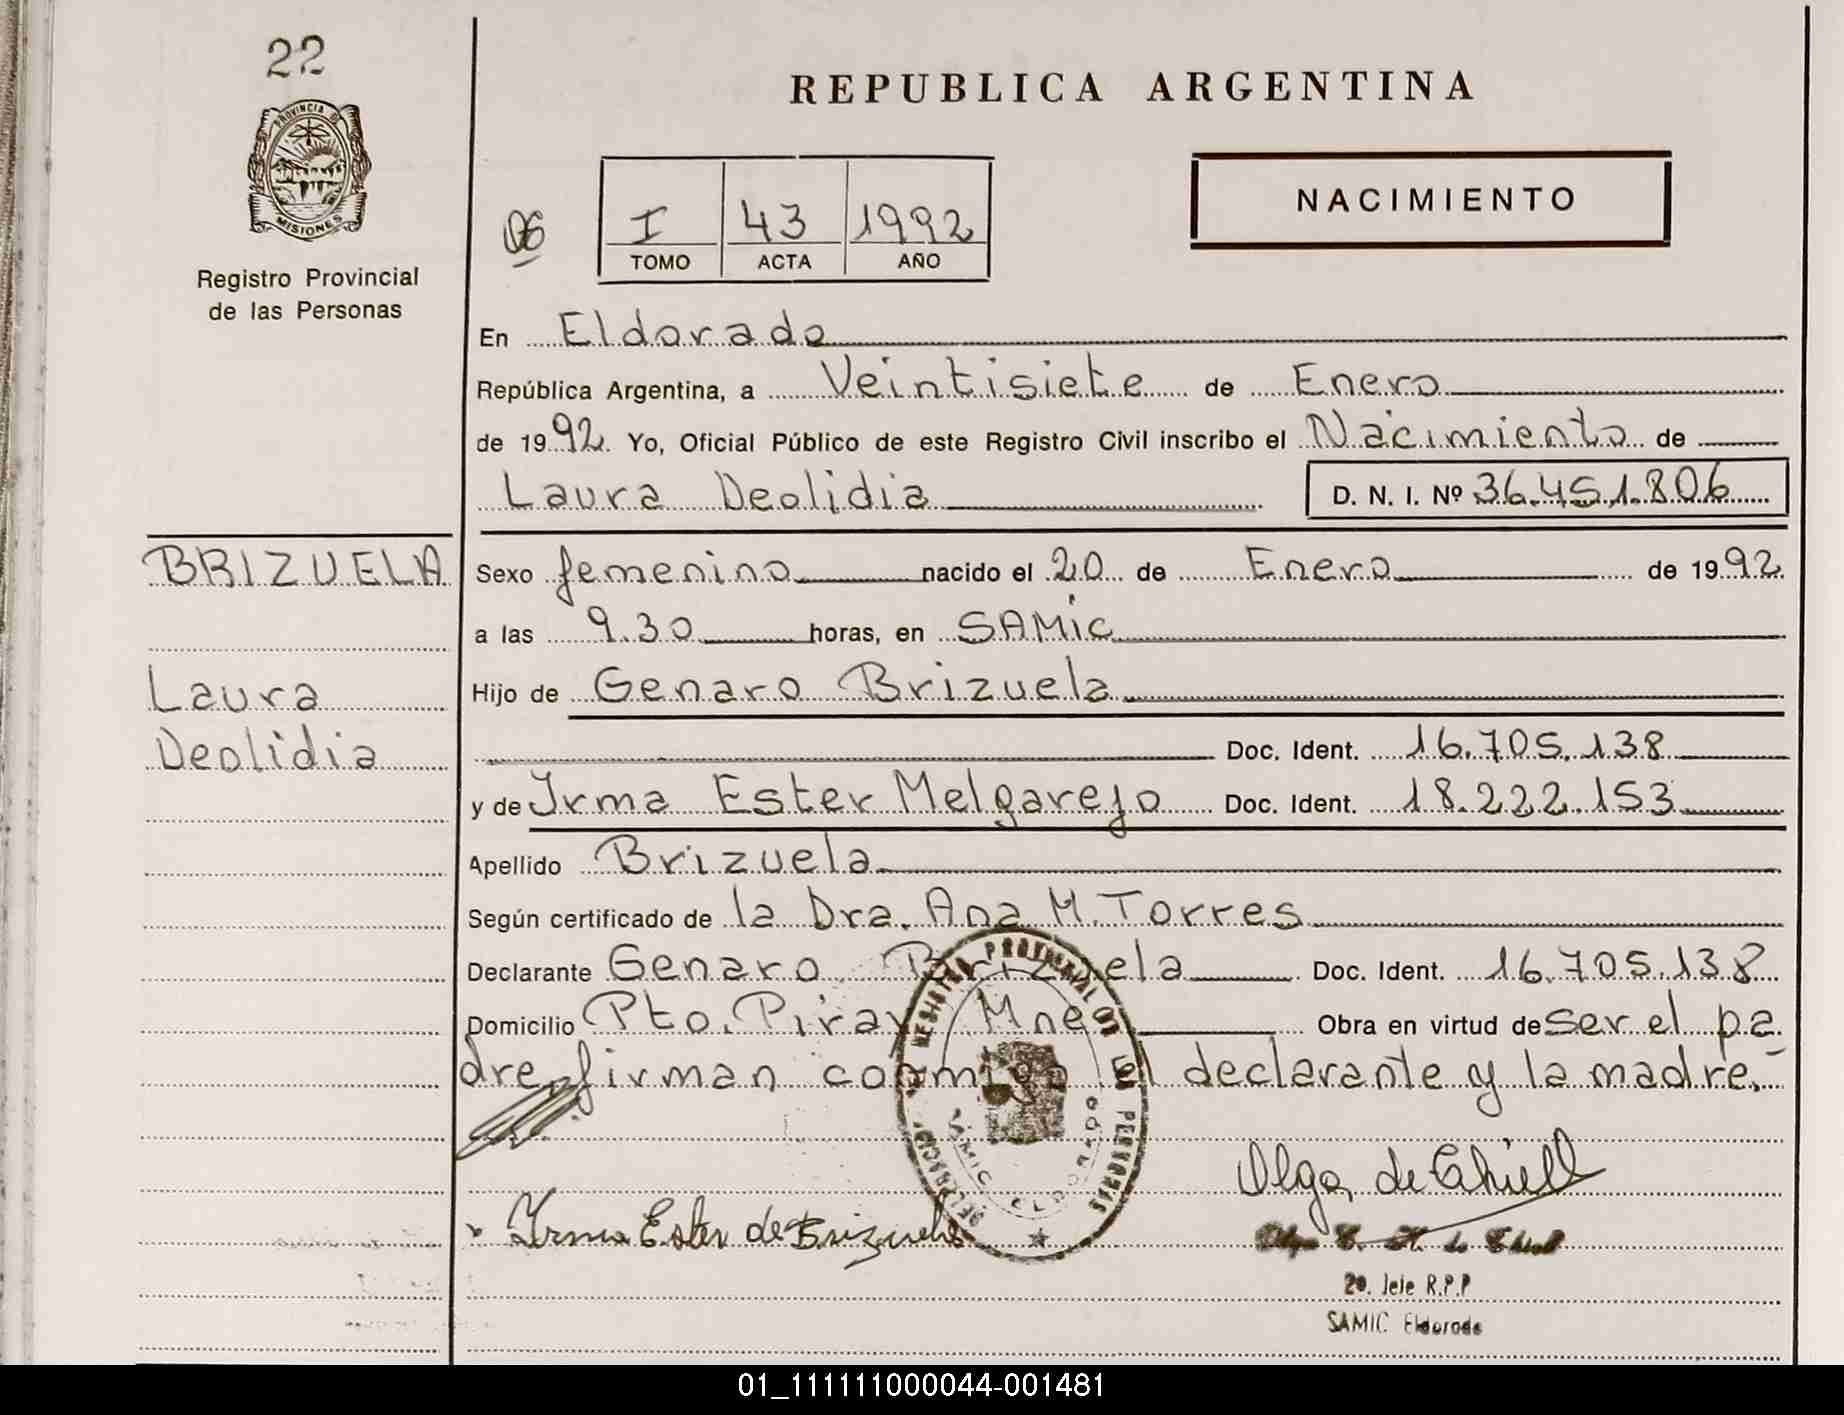 22
PROVINCIA DE
MISIONES
Registro Provincial
de las Personas
REPUBLICA ARGENTINA
06
I 43 1992
TOMO ACTA AÑO
NACIMIENTO
En Eldorado
República Argentina, a Veintisiete de Enero
de 1992. Yo, Oficial Público de este Registro Civil inscribo el Nacimiento de
Laura Deolidia D. N. I. Nº 36.451.806
BRIZUELA
Laura
Deolidia
Sexo femenino nacido el 20 de Enero de 1992
a las 9.30 horas, en SAMIC
Hijo de Genaro Brizuela
Doc. Ident. 16.705.138
y de Irma Ester Melgarejo Doc. Ident. 18.222.153
Apellido Brizuela
Según certificado de la Dra. Ana M. Torres
Declarante Genaro Brizuela Doc. Ident. 16.705.138
Domicilio Pto. Piray Mnes Obra en virtud de ser el pa-
dre, firman conmigo el declarante y la madre.
REGISTRO PROVINCIAL DE LAS PERSONAS
DELEGACION
SAMIC ELDORADO
Olga de Chiell
Irma Ester de Brizuela
2º. Jefe R.P.P
SAMIC Eldorado
01_111111000044-001481